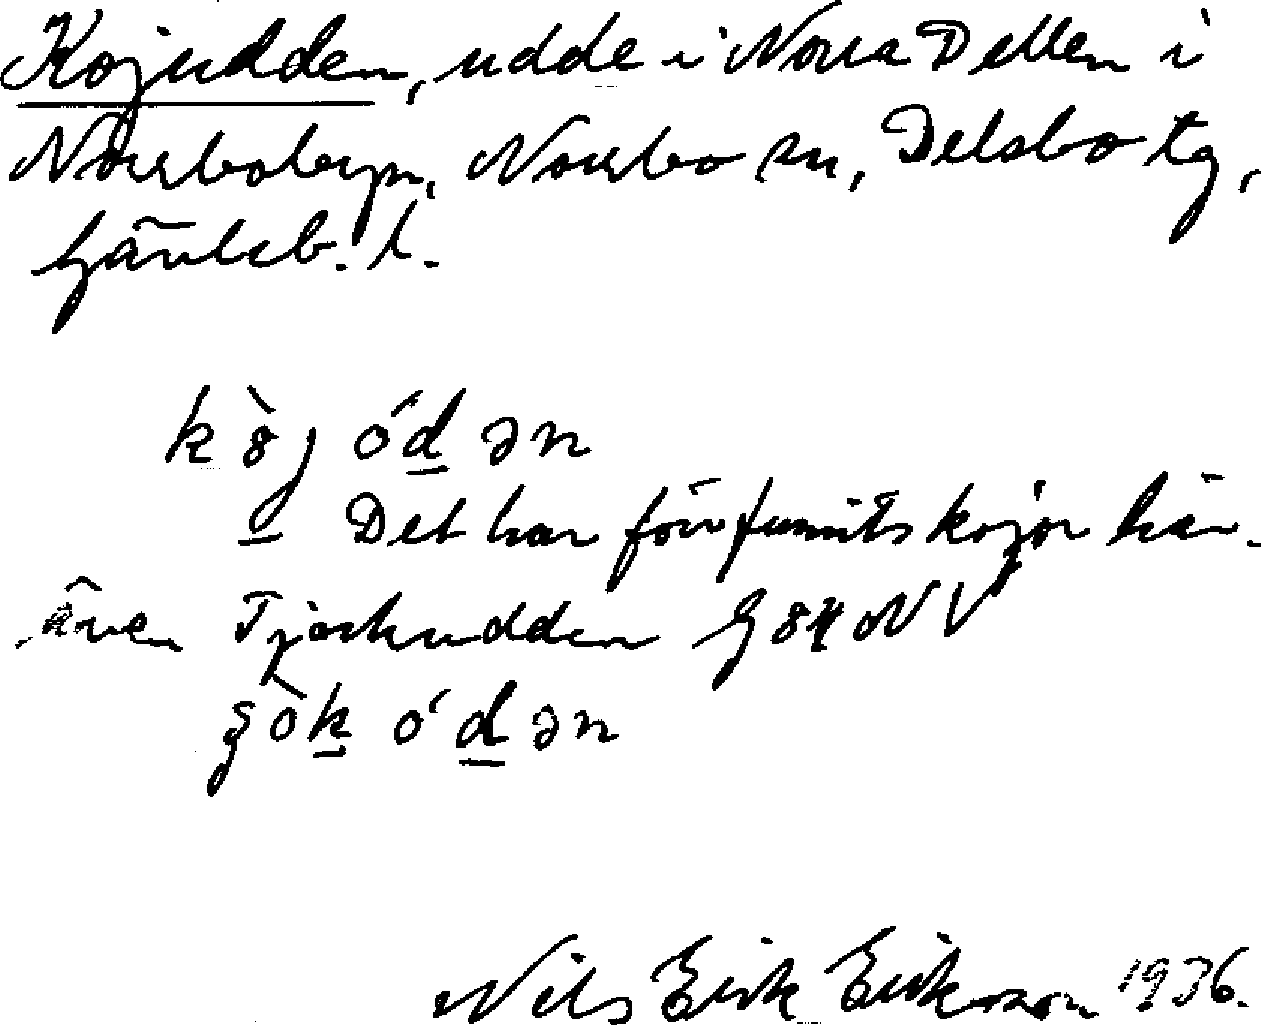 Kojudden, udde i Norra Dellen i
Norrbobyn, Norrbo sn, Delsbo tg,
Gävleb. l.
kòj ódən
Det har förr funnits kojor här.
även Tjärkudden G 84 NV
ódən
Nils Erik Eriksson 1936.